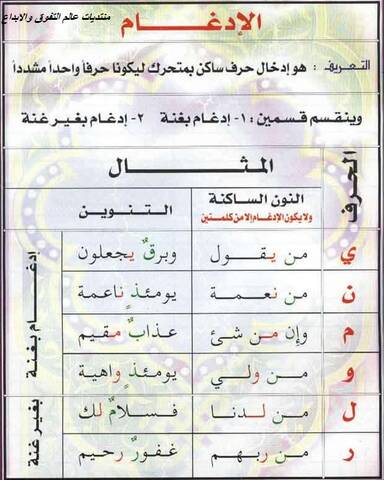 منتديات عالم التفوق والابداع
الإدغـــام
التعريف : هو إدخال حرف ساكن بمتحرك ليكونا حرفاً واحداً مشدداً
وينقسم قسمين : ١- إدغام بغنة ٢- إدغام بغير غنة
الحرف
المثــال
النون الساكنة
ولا يكون الإدغام إلا من كلمتين
التـنـويـن
ي من يقول وبرقٌ يجعلون
ن من نعمة يومئذٍ ناعمة
م وإن من شئ عذابٌ مقيم
و من ولي يومئذٍ واهية
ل من لدنا فسلامٌ لك
ر من ربهم غفورٌ رحيم
إدغام بغنة
بغير غنة